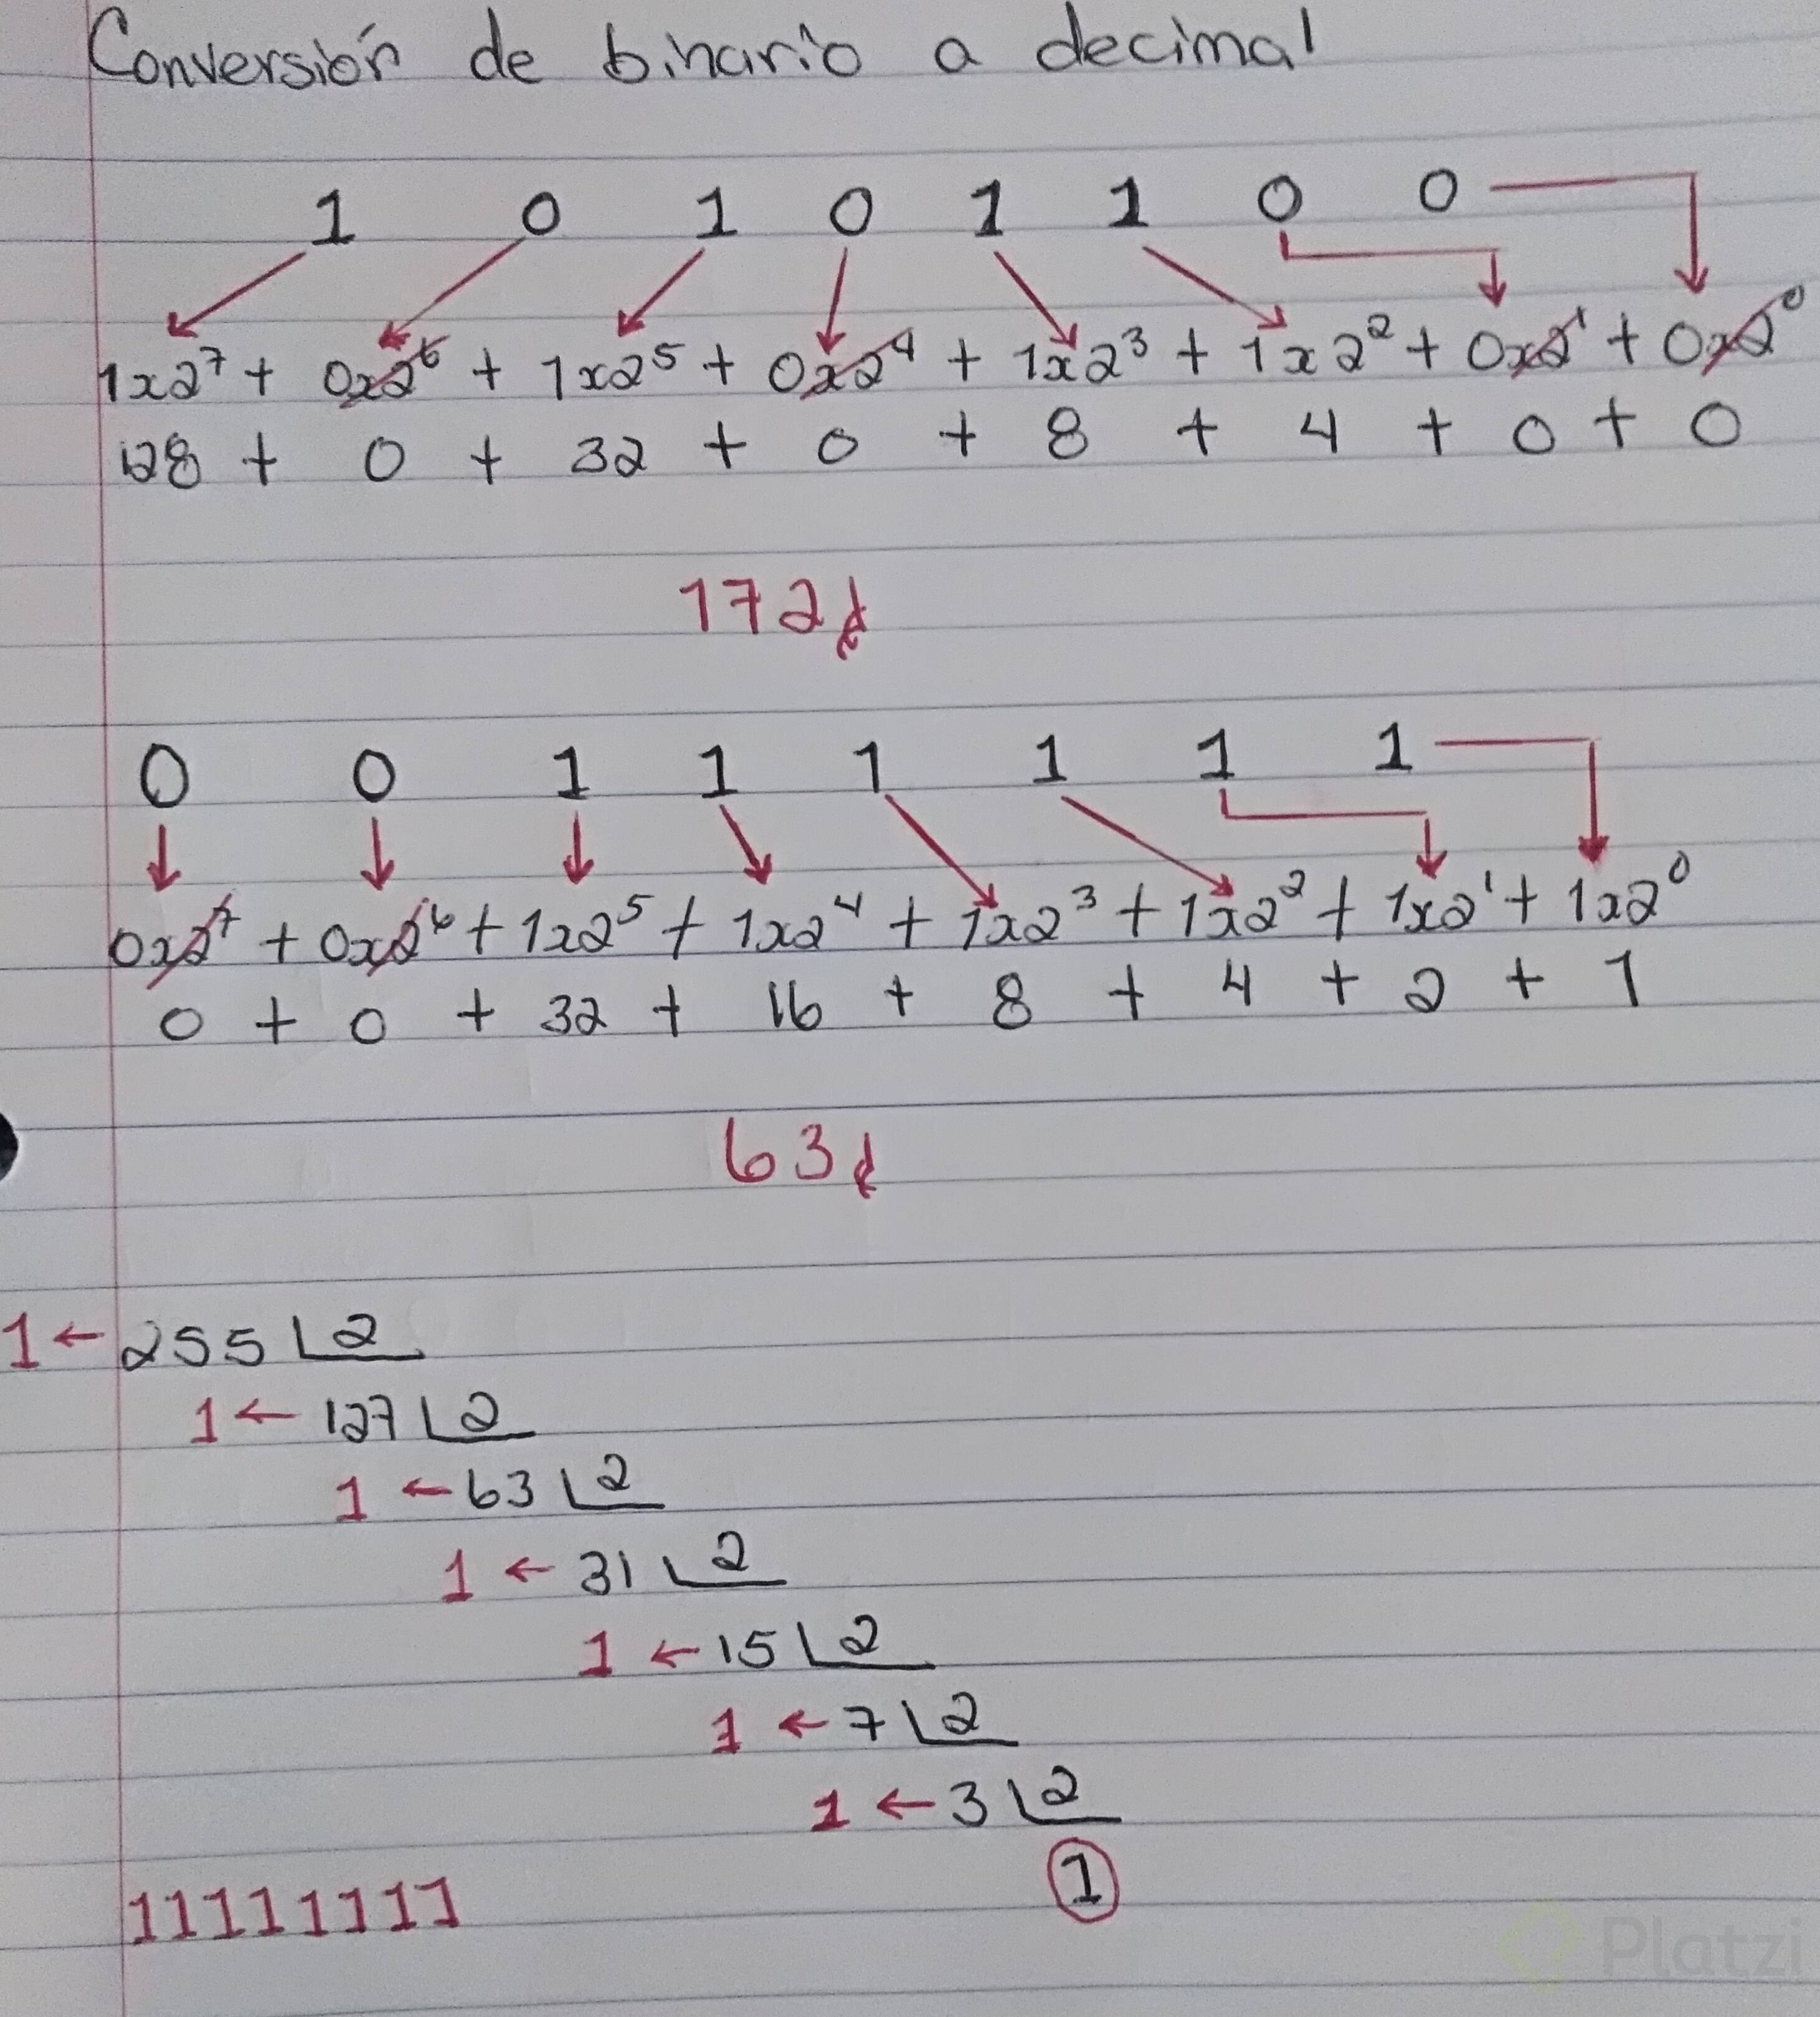 Conversión de binario a decimal
1 0 1 0 1 1 0 0
1x2⁷ + 0x2⁶ + 1x2⁵ + 0x2⁴ + 1x2³ + 1x2² + 0x2¹ + 0x2⁰
128 + 0 + 32 + 0 + 8 + 4 + 0 + 0
172
0 0 1 1 1 1 1 1
0x2⁷ + 0x2⁶ + 1x2⁵ + 1x2⁴ + 1x2³ + 1x2² + 1x2¹ + 1x2⁰
0 + 0 + 32 + 16 + 8 + 4 + 2 + 1
63
1 ← 255 2
1 ← 127 2
1 ← 63 2
1 ← 31 2
1 ← 15 2
1 ← 7 2
1 ← 3 2
1
11111111
Platzi